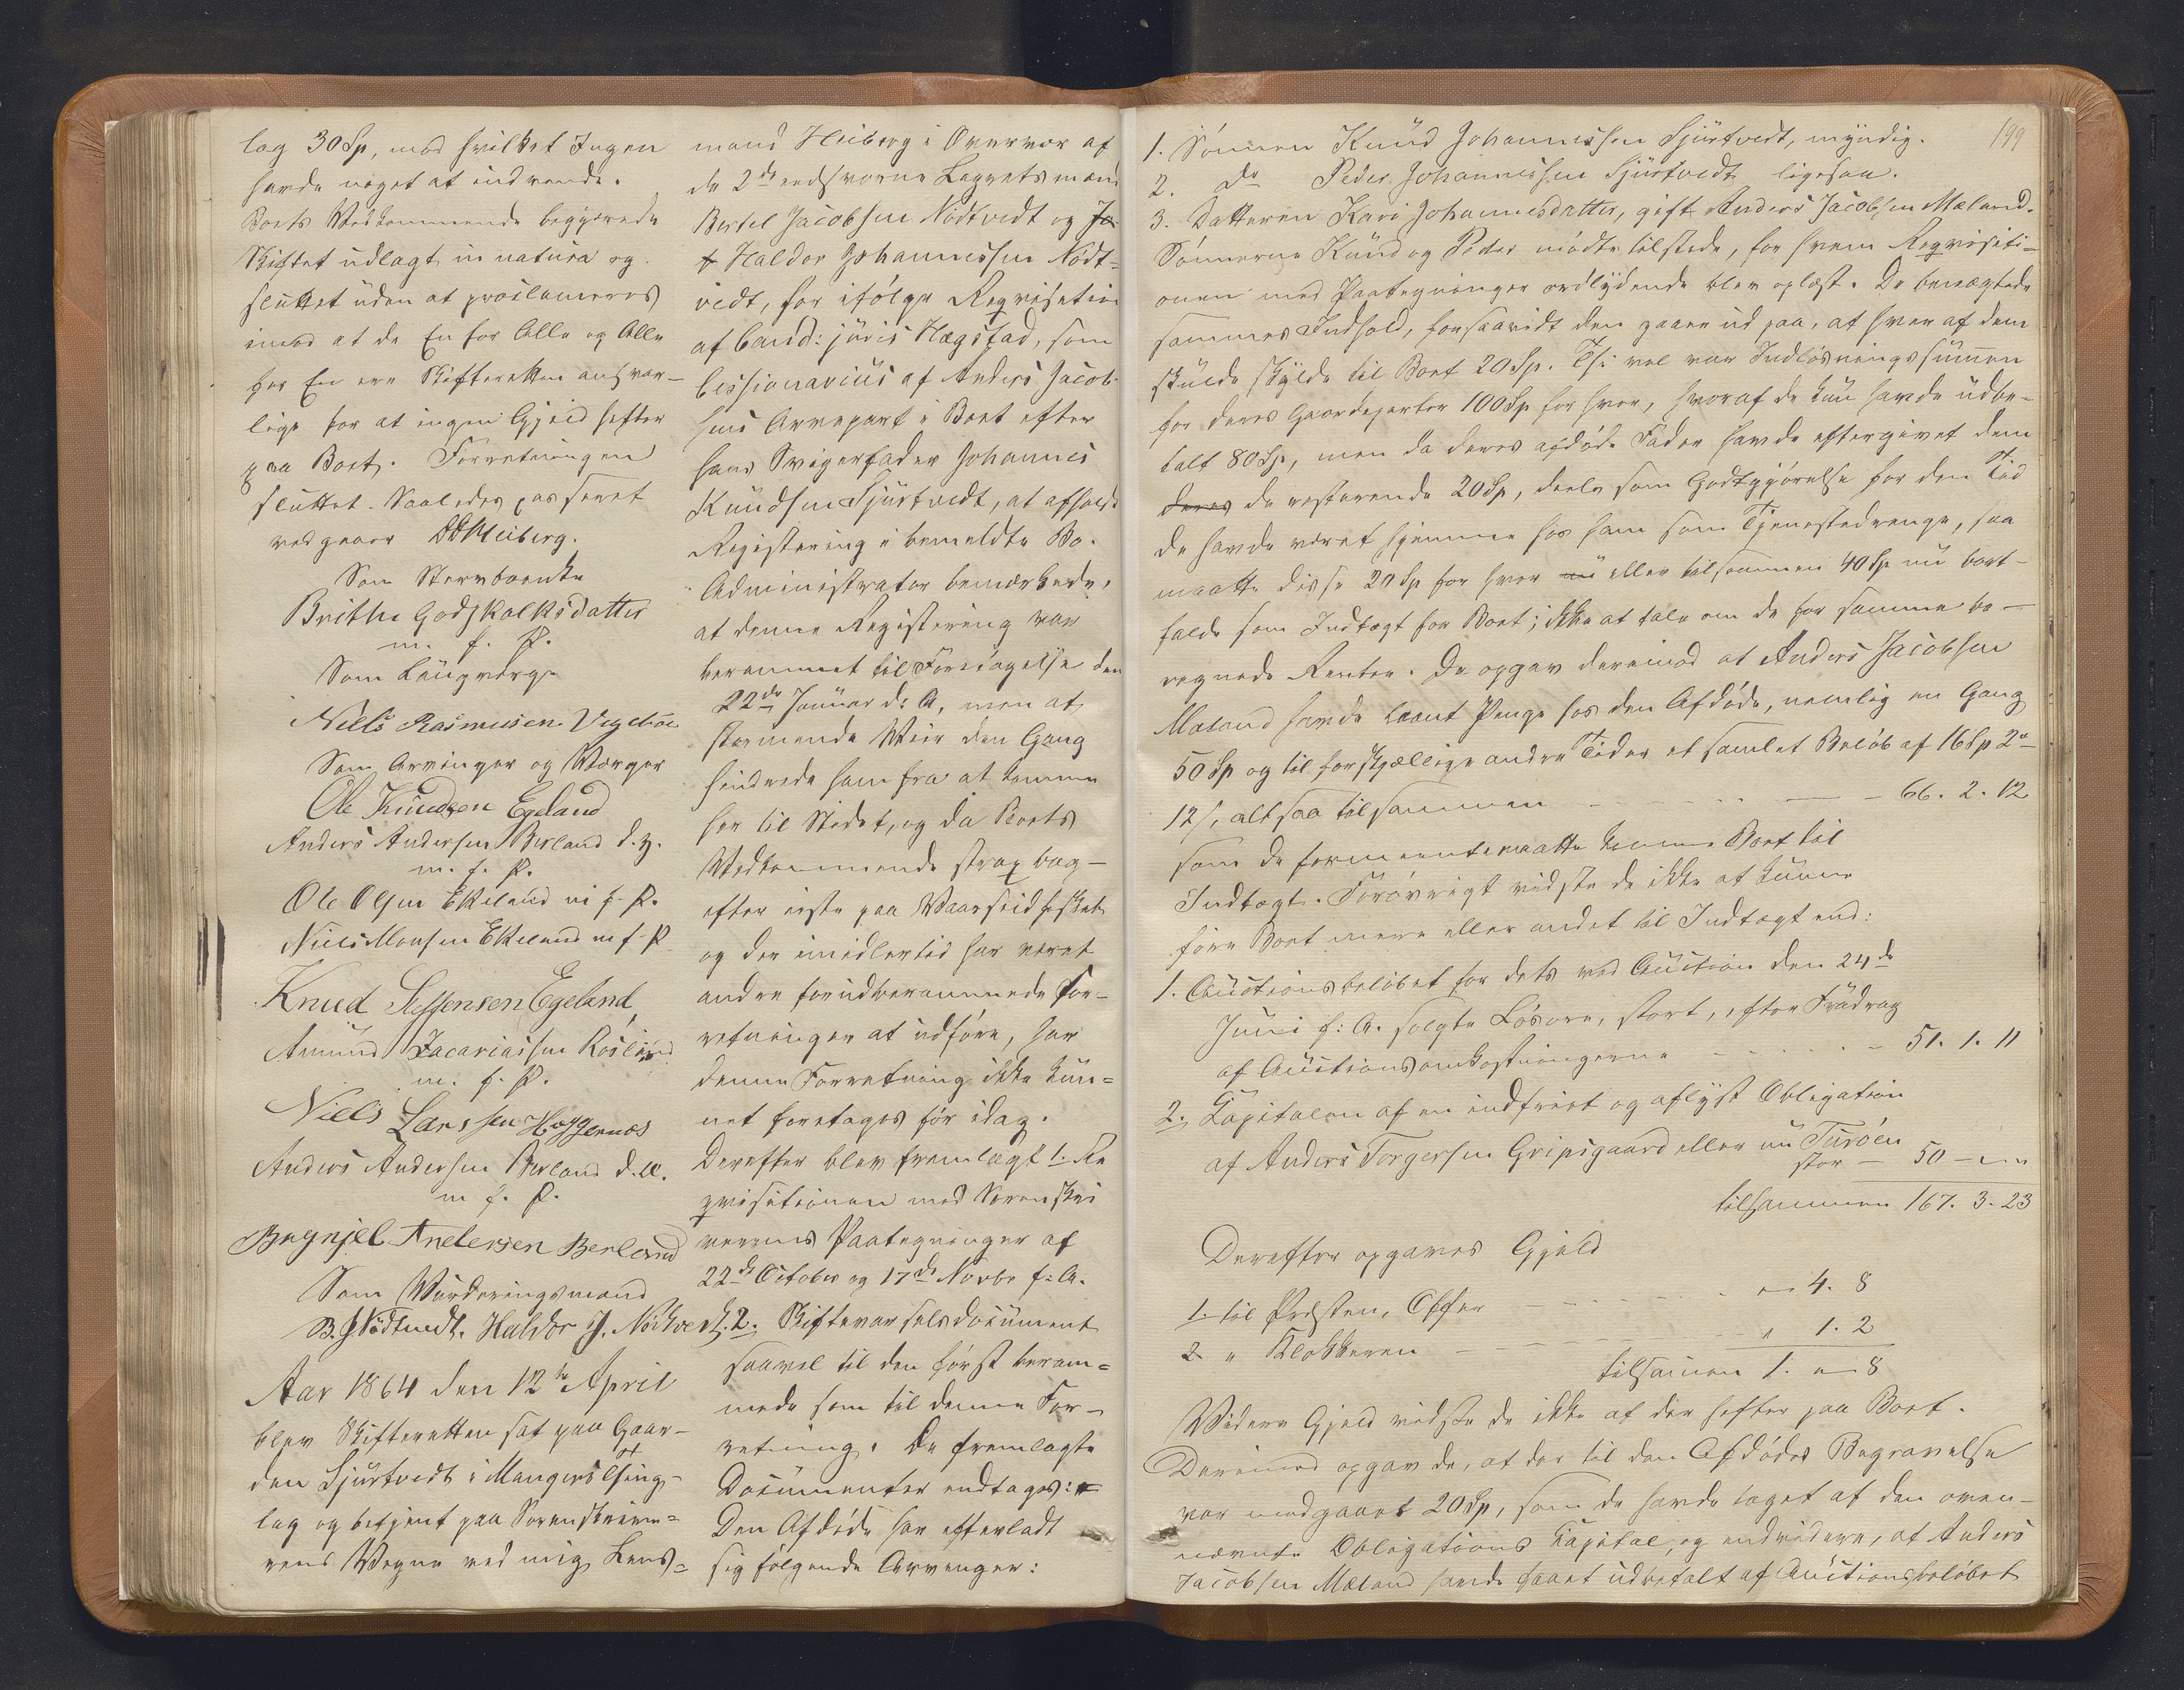 lag 30 Sp, mod hvilket Ingen
havde noget at indvende.
Boets Vedkommende begjærede
Skiftet udlagt in natura og
sluttet uden at proclameres
imod at de En for Alle og Alle
for En ere Skifteretten ansvar-
lige for at ingen Gjæld hefter
paa Boet. Forretningen
sluttet. Saaledes passeret
vedgaaer DDHeiberg.
Som Stervboenke
Brithe Godskalksdatter
m. f. P.
Som Laugværge
Niels Rasmusen Vigeboe
Som Arvinger og Værger
Ole Knudsen Egeland
Anders Andersen Berland d. y.
m. f. P.
Ole Olsen Ekeland m f. P.
Niels Monsen Ekeland m f. P
Knud Steffensen Egeland
Amund Zacariassen Rosland
m. f. P.
Niels Larssen Hoggernæs
Anders Andersen Berland d. æ.
m f. P.
Bugnjel Andersen Berland
Som Vurderingsmænd
B. J. Nødtvedt. Haldor J. Nødtvedt.
Aar 1864 den 12te April
blev Skifteretten sat paa Gaar-
den Sjurtvedt i Mangers Thing-
lag og betjent paa Sorenskrive-
rens Vegne ved mig Lens-
mand Heiberg i Overvær af
de 2de eedsvorne Lagrettsmænd
Bertel Jacobsen Nødtvedt og Jo
Haldor Johannessen Nødt-
vedt, for ifølge Reqvisition
af Cand: juris Hægstad, som
Cessionarius af Anders Jacob-
sens Arvepart i Boet efter
hans Svigerfader Johannes
Knudsen Sjurtvedt, at afholde
Registrering i bemeldte Bo.
Administrator bemærkede,
at denne Registrering var
berammet til Foretagelse den
22de Januar d: A, men at
stormende Veir den Gang
hindrede ham fra at komme
her til Stedet, og da Boets
Vedkommende strax bag-
efter reiste paa Vaarsildfisket
og der imidlertid har været
andre forudberammede For-
retninger at udføre, har
denne Forretning ikke kun-
net foretages før idag.
Derefter blev fremlagt 1. Re
qvisitionen med Sorenskri
verens Paategninger af
22de October og 17de Novbr f: A.
2. Skiftevarselsdocument
saavel til den først beram-
mede som til denne For-
retning. De fremlagte
Documenter indtages:
Den Afdøde har efterladt
sig følgende Arvinger:
199
1. Sønnen Knud Johannessen Sjurtvedt, myndig.
2. do Peder Johannessen Sjurtvedt ligesaa.
3. Datteren Kari Johannesdatter, gift Anders Jacobsen Mæland.
Sønnerne Knud og Peder mødte tilstede, for hvem Reqvisiti-
onen med Paategninger ordlydende blev oplæst. De benægtede
sammes Indhold, forsaavidt den gaaer ud paa, at hver af dem
skulde skylde til Boet 20 Sp. Thi vel var Indløsningssummen
for deres Gaardeparter 100 Sp for hver, hvoraf de kun havde udbe-
talt 80 Sp, men da deres afdøde Fader havde eftergivet dem
deres de resterende 20 Sp, deels som Godtgjørelse for den Tid
de havde været hjemme hos ham som Tjenestedrenge, saa
maatte disse 20 Sp for hver nu eller tilsammen 40 Sp nu bort-
falde som Indtægt for Boet; ikke at tale om de for samme be-
regnede Renter. De opgav derimod at Anders Jacobsen
Mæland havde laant Penge hos den Afdøde, nemlig en Gang
50 Sp og til forskjellige andre Tider et samlet Beløb af 16 Sp 2
12 s, altsaa tilsammen - - - 66. 2. 12
som de formeente maatte komme Boet til
Indtægt. Forøvrigt vidste de ikke at kunne
føre Boet mere eller andet til Indtægt end:
1. Auctionsbeløbet for dets ved Auction den 24de
Juni f: A. solgte Løsøre, stort, efter Fradrag
af Auctionsomkostningerne - - - 51. 1. 11
2. Kapitalen af en indfriet og aflyst Obligation
af Anders Torgersen Gripsgaard eller nu Turøen
stor - 50 - " - "
tilsammen 167. 3. 23
Derefter opgaves Gjæld
1. til Præsten, Offer - - - " 4. 8
2. " Klokkeren - - - " 1. 2
tilsammen 1. " 8
Videre Gjæld vidste de ikke at der hefter paa Boet.
Derimod opgav de, at der til den Afdødes Begravelse
var medgaaet 20 Sp, som de havde taget af den oven-
nævnte Obligations Kapital, og endvidere, at Anders
Jacobsen Mæland havde faaet udbetalt af Auctionsbeløbet